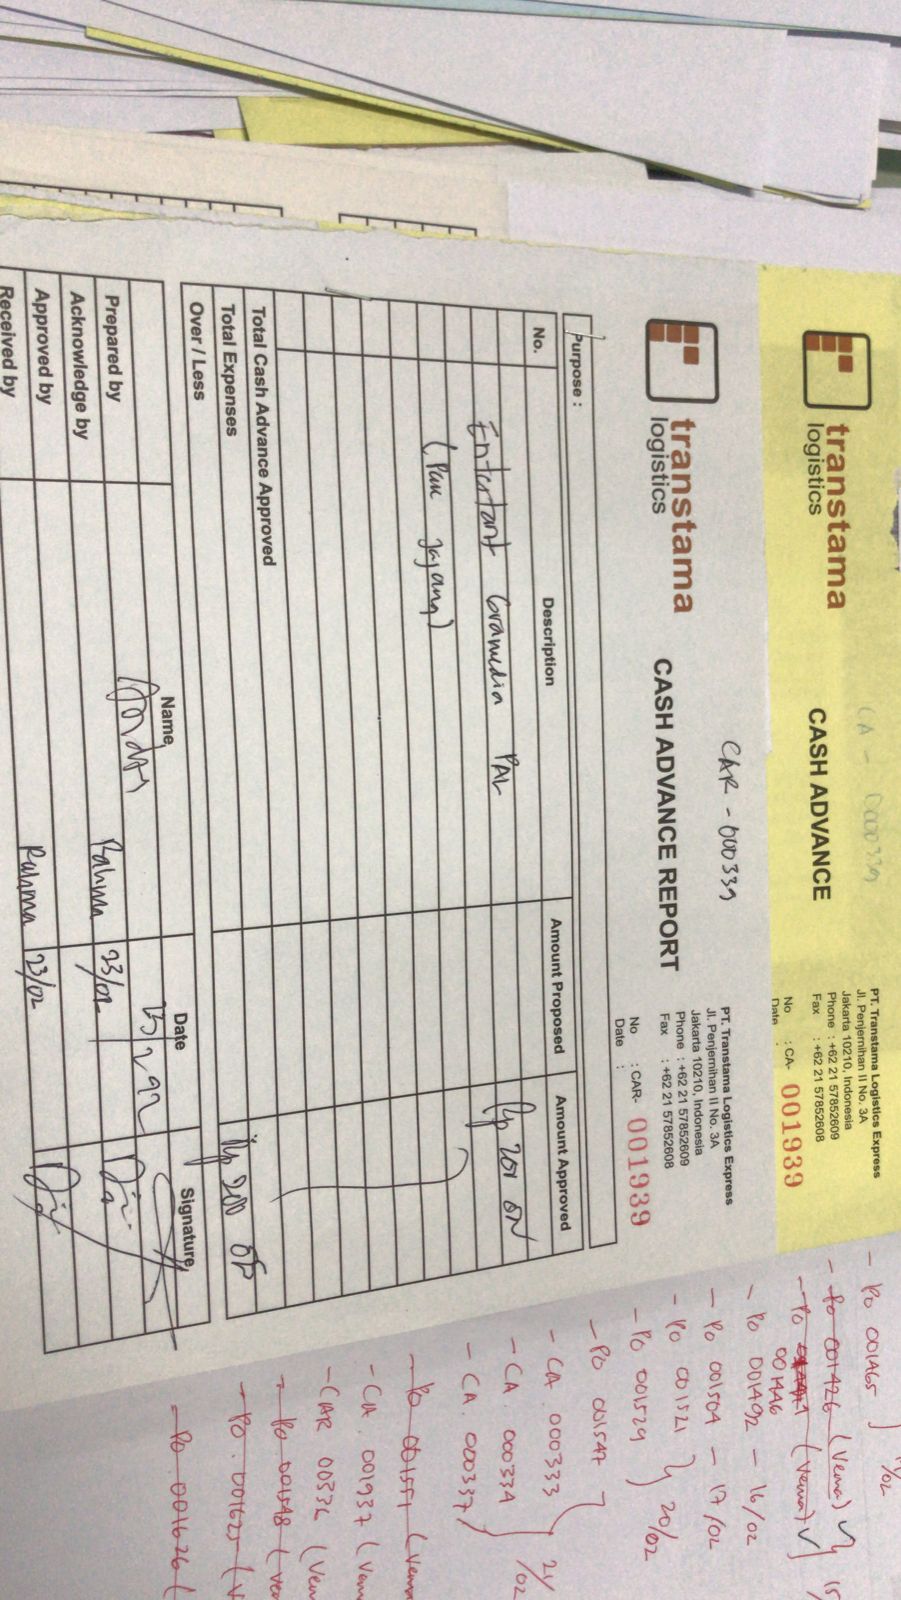 CA - 0000339
transtama
logistics
CASH ADVANCE
PT. Transtama Logistics Express
Jl. Penjernihan II No. 3A
Jakarta 10210, Indonesia
Phone : +62 21 57852609
Fax : +62 21 57852608
No : CA- 001939
Date :
CAR - 000339
transtama
logistics
CASH ADVANCE REPORT
PT. Transtama Logistics Express
Jl. Penjernihan II No. 3A
Jakarta 10210, Indonesia
Phone : +62 21 57852609
Fax : +62 21 57852608
No : CAR- 001939
Date :
Purpose :
No. Description Amount Proposed Amount Approved
Entertant Gramedia PAL Rp 200
(Pak Jajang)
Total Cash Advance Approved
Total Expenses Rp 200
Over / Less
Name Date Signature
Prepared by
Acknowledge by Rahma 23/02
Approved by
Received by Rahma 23/02
- PO 001465
- PO 001426 (Vema)
- PO 001446 (Vema)
- PO 001492 - 16/02
- PO 001504 - 17/02
- PO 001521 20/02
- PO 001529
- PO 001547
- CA 000333 21/02
- CA 000334
- CA 000337
- PO 001551 (Vema
- CA 001937 (Vem
- CAR 00336 (Vem
- PO 001548 (Vem
- PO 001625 (V
- PO 001626 (